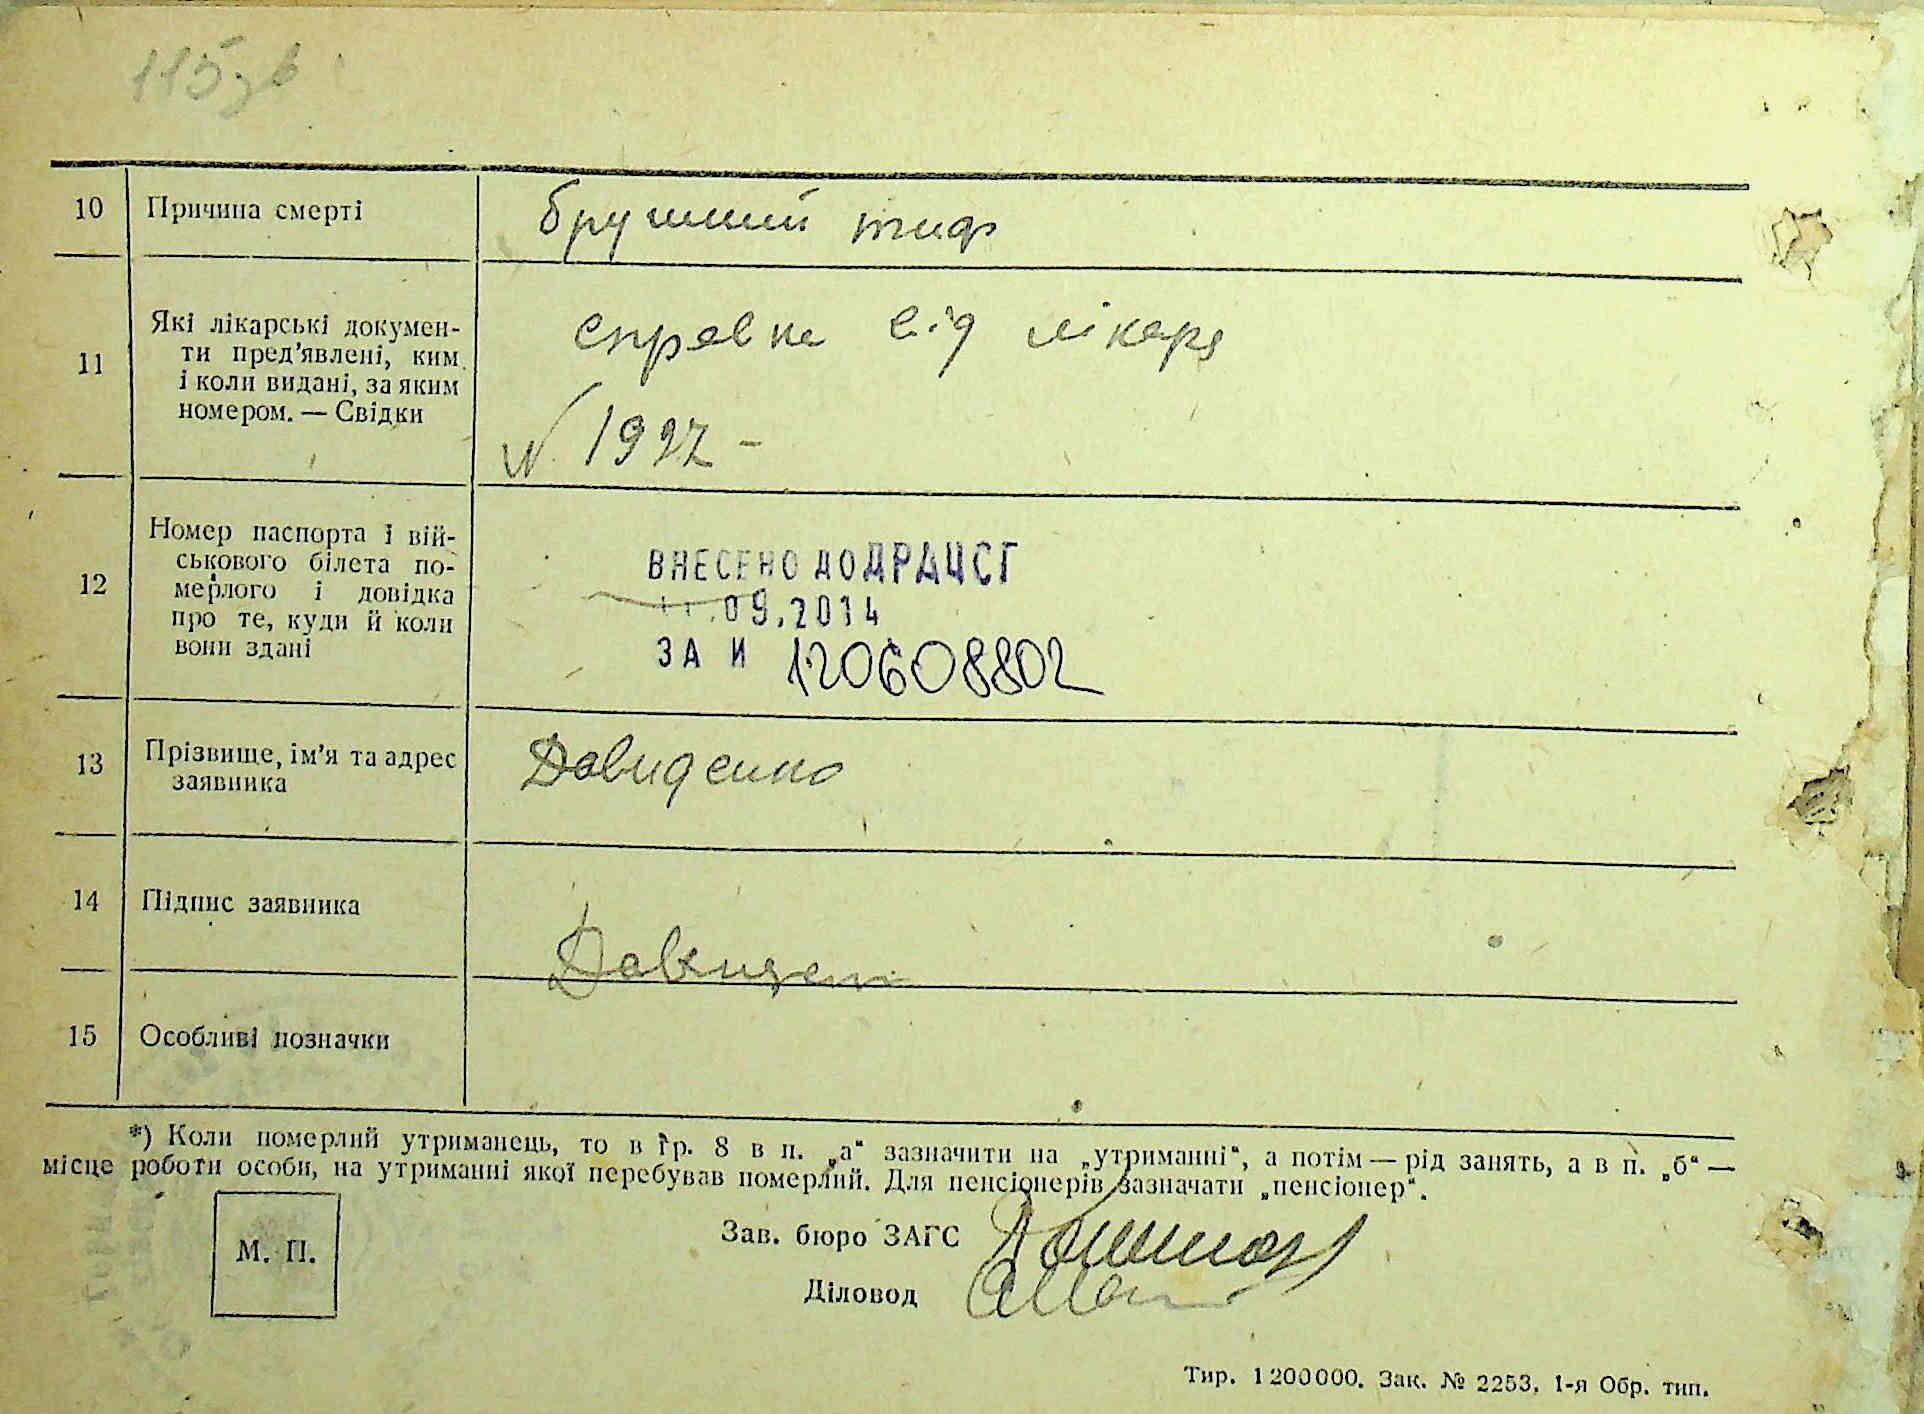 115зв
10 Причина смерті брушний тиф
11 Які лікарські докумен-
ти пред'явлені, ким
і коли видані, за яким
номером. — Свідки
справка від лікаря
N 1927 -
12 Номер паспорта і вій-
ськового білета по-
мерлого і довідка
про те, куди й коли
вони здані
ВНЕСЕНО ДО ДРАЦСГ
09.2014
ЗА И 120608802
13 Прізвище, ім'я та адрес
заявника
Давиденко
14 Підпис заявника
Давиден
15 Особливі позначки
*) Коли померлий утриманець, то в гр. 8 в п. „а“ зазначити на „утриманні“, а потім — рід занять, а в п. „б“ —
місце роботи особи, на утриманні якої перебував померлий. Для пенсіонерів зазначати „пенсіонер“.
М. П.
Зав. бюро ЗАГС
Діловод
Тир. 1200000. Зак. № 2253. 1-я Обр. тип.